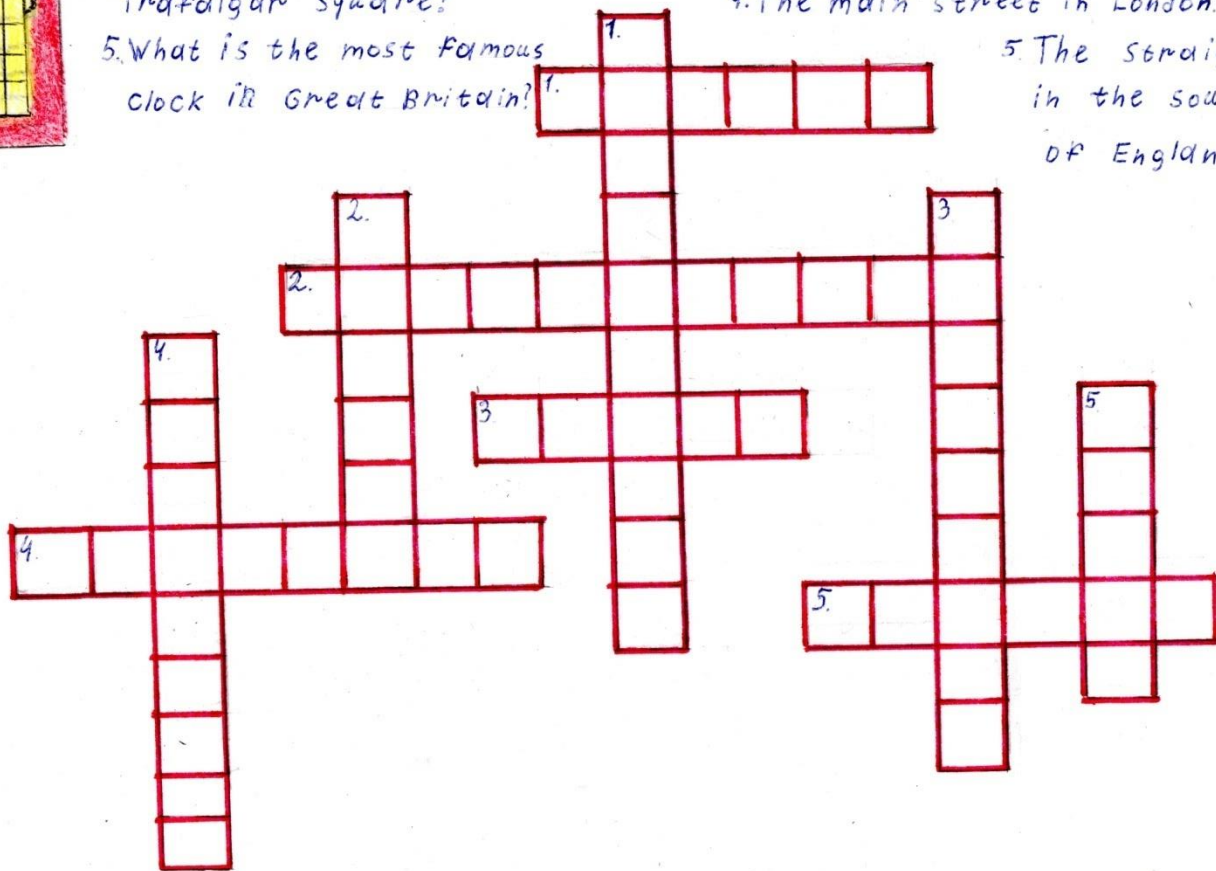 Trafalgar Square?
5. What is the most famous
clock in Great Britain?
4. The main street in London.
5. The strai
in the sou
of Englan
1.
1.
2.
3
2.
4.
3
5
4.
5.